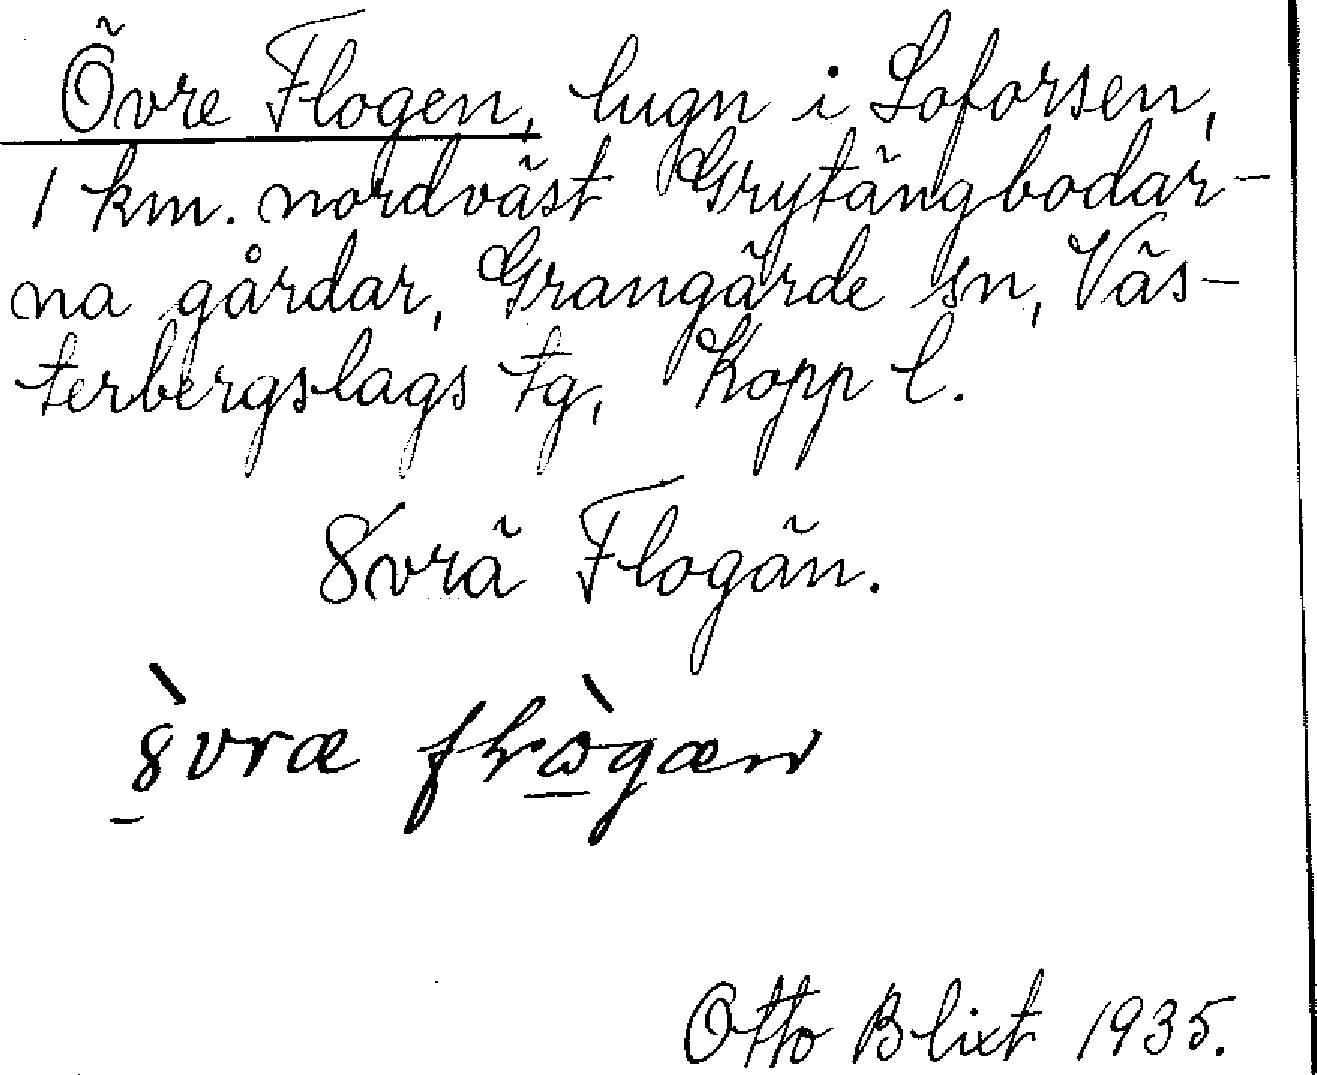 Övre Flogen, lugn i Loforsen,
1 km. nordväst Grytängbodar-
na gårdar, Grangärde sn, Väs-
terbergslags tg, Kopp l.
8vrä Flogän.
Otto Blixt 1935.